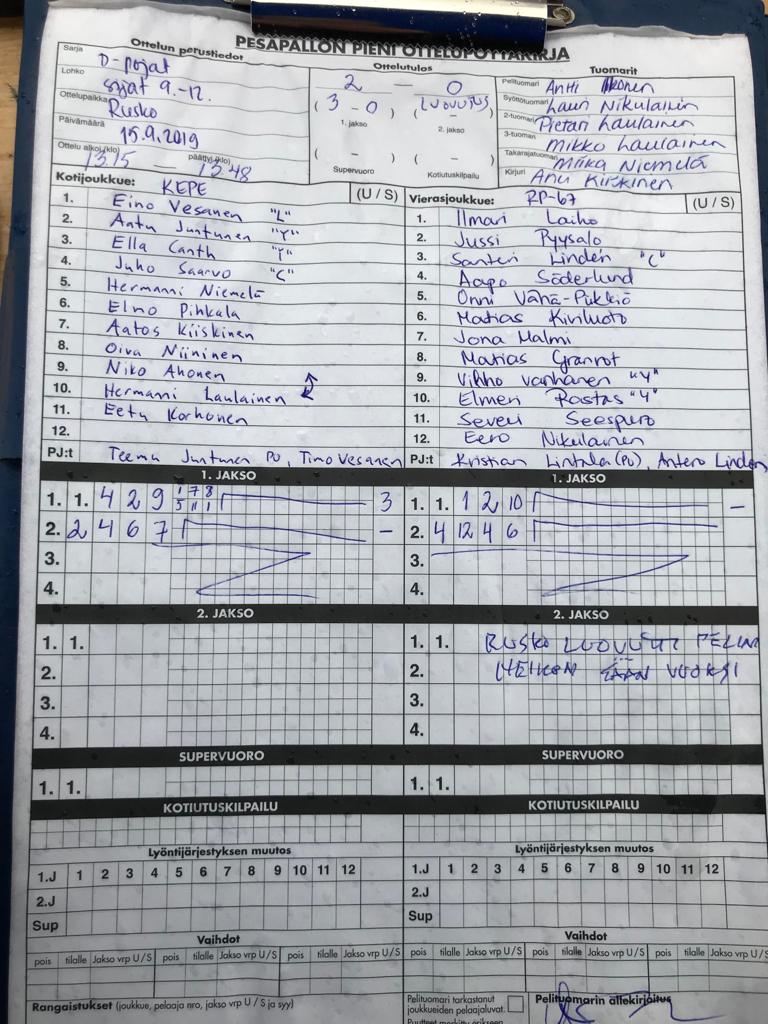 PESÄPALLON PIENI OTTELUPÖYTÄKIRJA
Ottelun perustiedot
Sarja D-pojat
Lohko sijat 9.-12.
Ottelupaikka Rusko
Päivämäärä 15.9.2019
Ottelu alkoi (klo) 1315 — päättyi (klo) 1348
Ottelutulos
2 — 0
( 3 - 0 ) ( LUOVUTUS )
1. jakso 2. jakso
( - ) ( - )
Supervuoro Kotiutuskilpailu
Tuomarit
Pelituomari Antti
Syöttötuomari Lauri Nikulainen
2-tuomari Pietari Laulainen
3-tuomari Mikko Laulainen
Takarajatuomari Miika Niemelä
Kirjuri Anu Kirkinen
Kotijoukkue: KEPE (U / S)
1. Eino Vesanen "L"
2. Antu Juntunen "Y"
3. Ella Canth "Y"
4. Juho Saarvo "C"
5. Hermanni Niemelä
6. Elmo Pihkala
7. Aatos Kiiskinen
8. Oiva Niininen
9. Niko Ahonen
10. Hermanni Laulainen
11. Eetu Korhonen
12.
PJ:t Teemu Juntunen PU, Timo Vesanen
Vierasjoukkue: RP-67 (U / S)
1. Ilmari Laiho
2. Jussi Pyysalo
3. Santeri Lindén "C"
4. Aapo Söderlund
5. Onni Vähä-Pukkiö
6. Matias Kiviluoto
7. Jona Malmi
8. Matias Granrot
9. Vilho Vanhanen "Y"
10. Elmeri Rostas "Y"
11. Severi Seespuro
12. Eero Nikulainen
PJ:t Kristian Lintala (PU), Antero Lindén
1. JAKSO
1. 1. 4 2 9 1 7 8 3
5 11 1
2. 2 4 6 7 —
3.
4.
1. JAKSO
1. 1. 1 2 10 —
2. 4 12 4 6
3.
4.
2. JAKSO
1. 1.
2.
3.
4.
2. JAKSO
1. 1. RUSKO LUOVUTTI PELIN
2. HEIKON SÄÄN VUOKSI
3.
4.
SUPERVUORO
1. 1.
SUPERVUORO
1. 1.
KOTIUTUSKILPAILU
KOTIUTUSKILPAILU
Lyöntijärjestyksen muutos
1.J 1 2 3 4 5 6 7 8 9 10 11 12
2.J
Sup
Lyöntijärjestyksen muutos
1.J 1 2 3 4 5 6 7 8 9 10 11 12
2.J
Sup
Vaihdot
pois tilalle Jakso vrp U / S pois tilalle Jakso vrp U / S pois tilalle Jakso vrp U / S
Vaihdot
pois tilalle Jakso vrp U / S pois tilalle Jakso vrp U / S pois tilalle Jakso vrp U / S
Rangaistukset (joukkue, pelaaja nro, jakso vrp U / S ja syy)
Pelituomari tarkastanut
joukkueiden pelaajaluvat.
Pelituomarin allekirjoitus